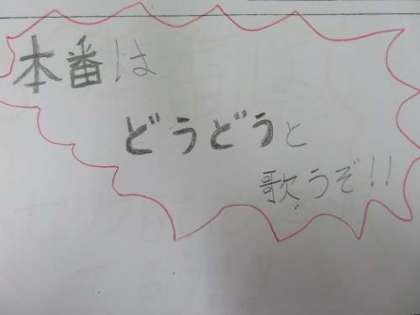 本番は
どうどうと
歌うぞ!!